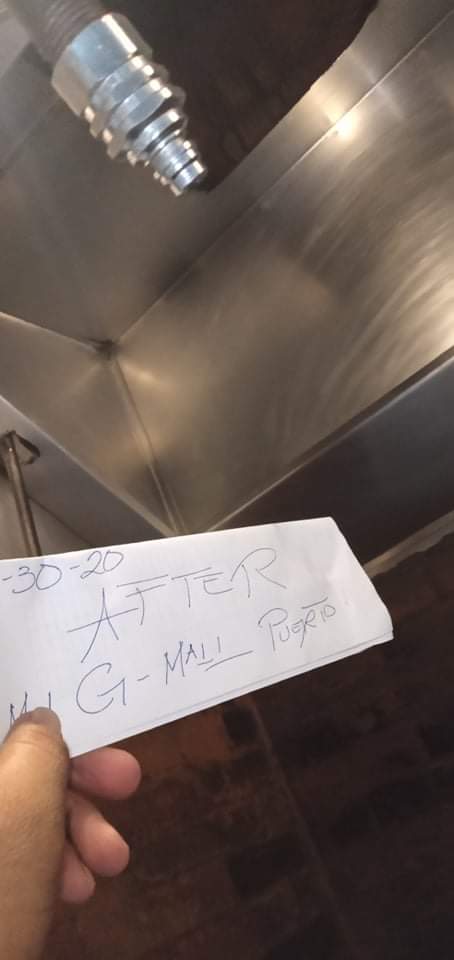 -30-20
AFTER
G-MALL PUERTO